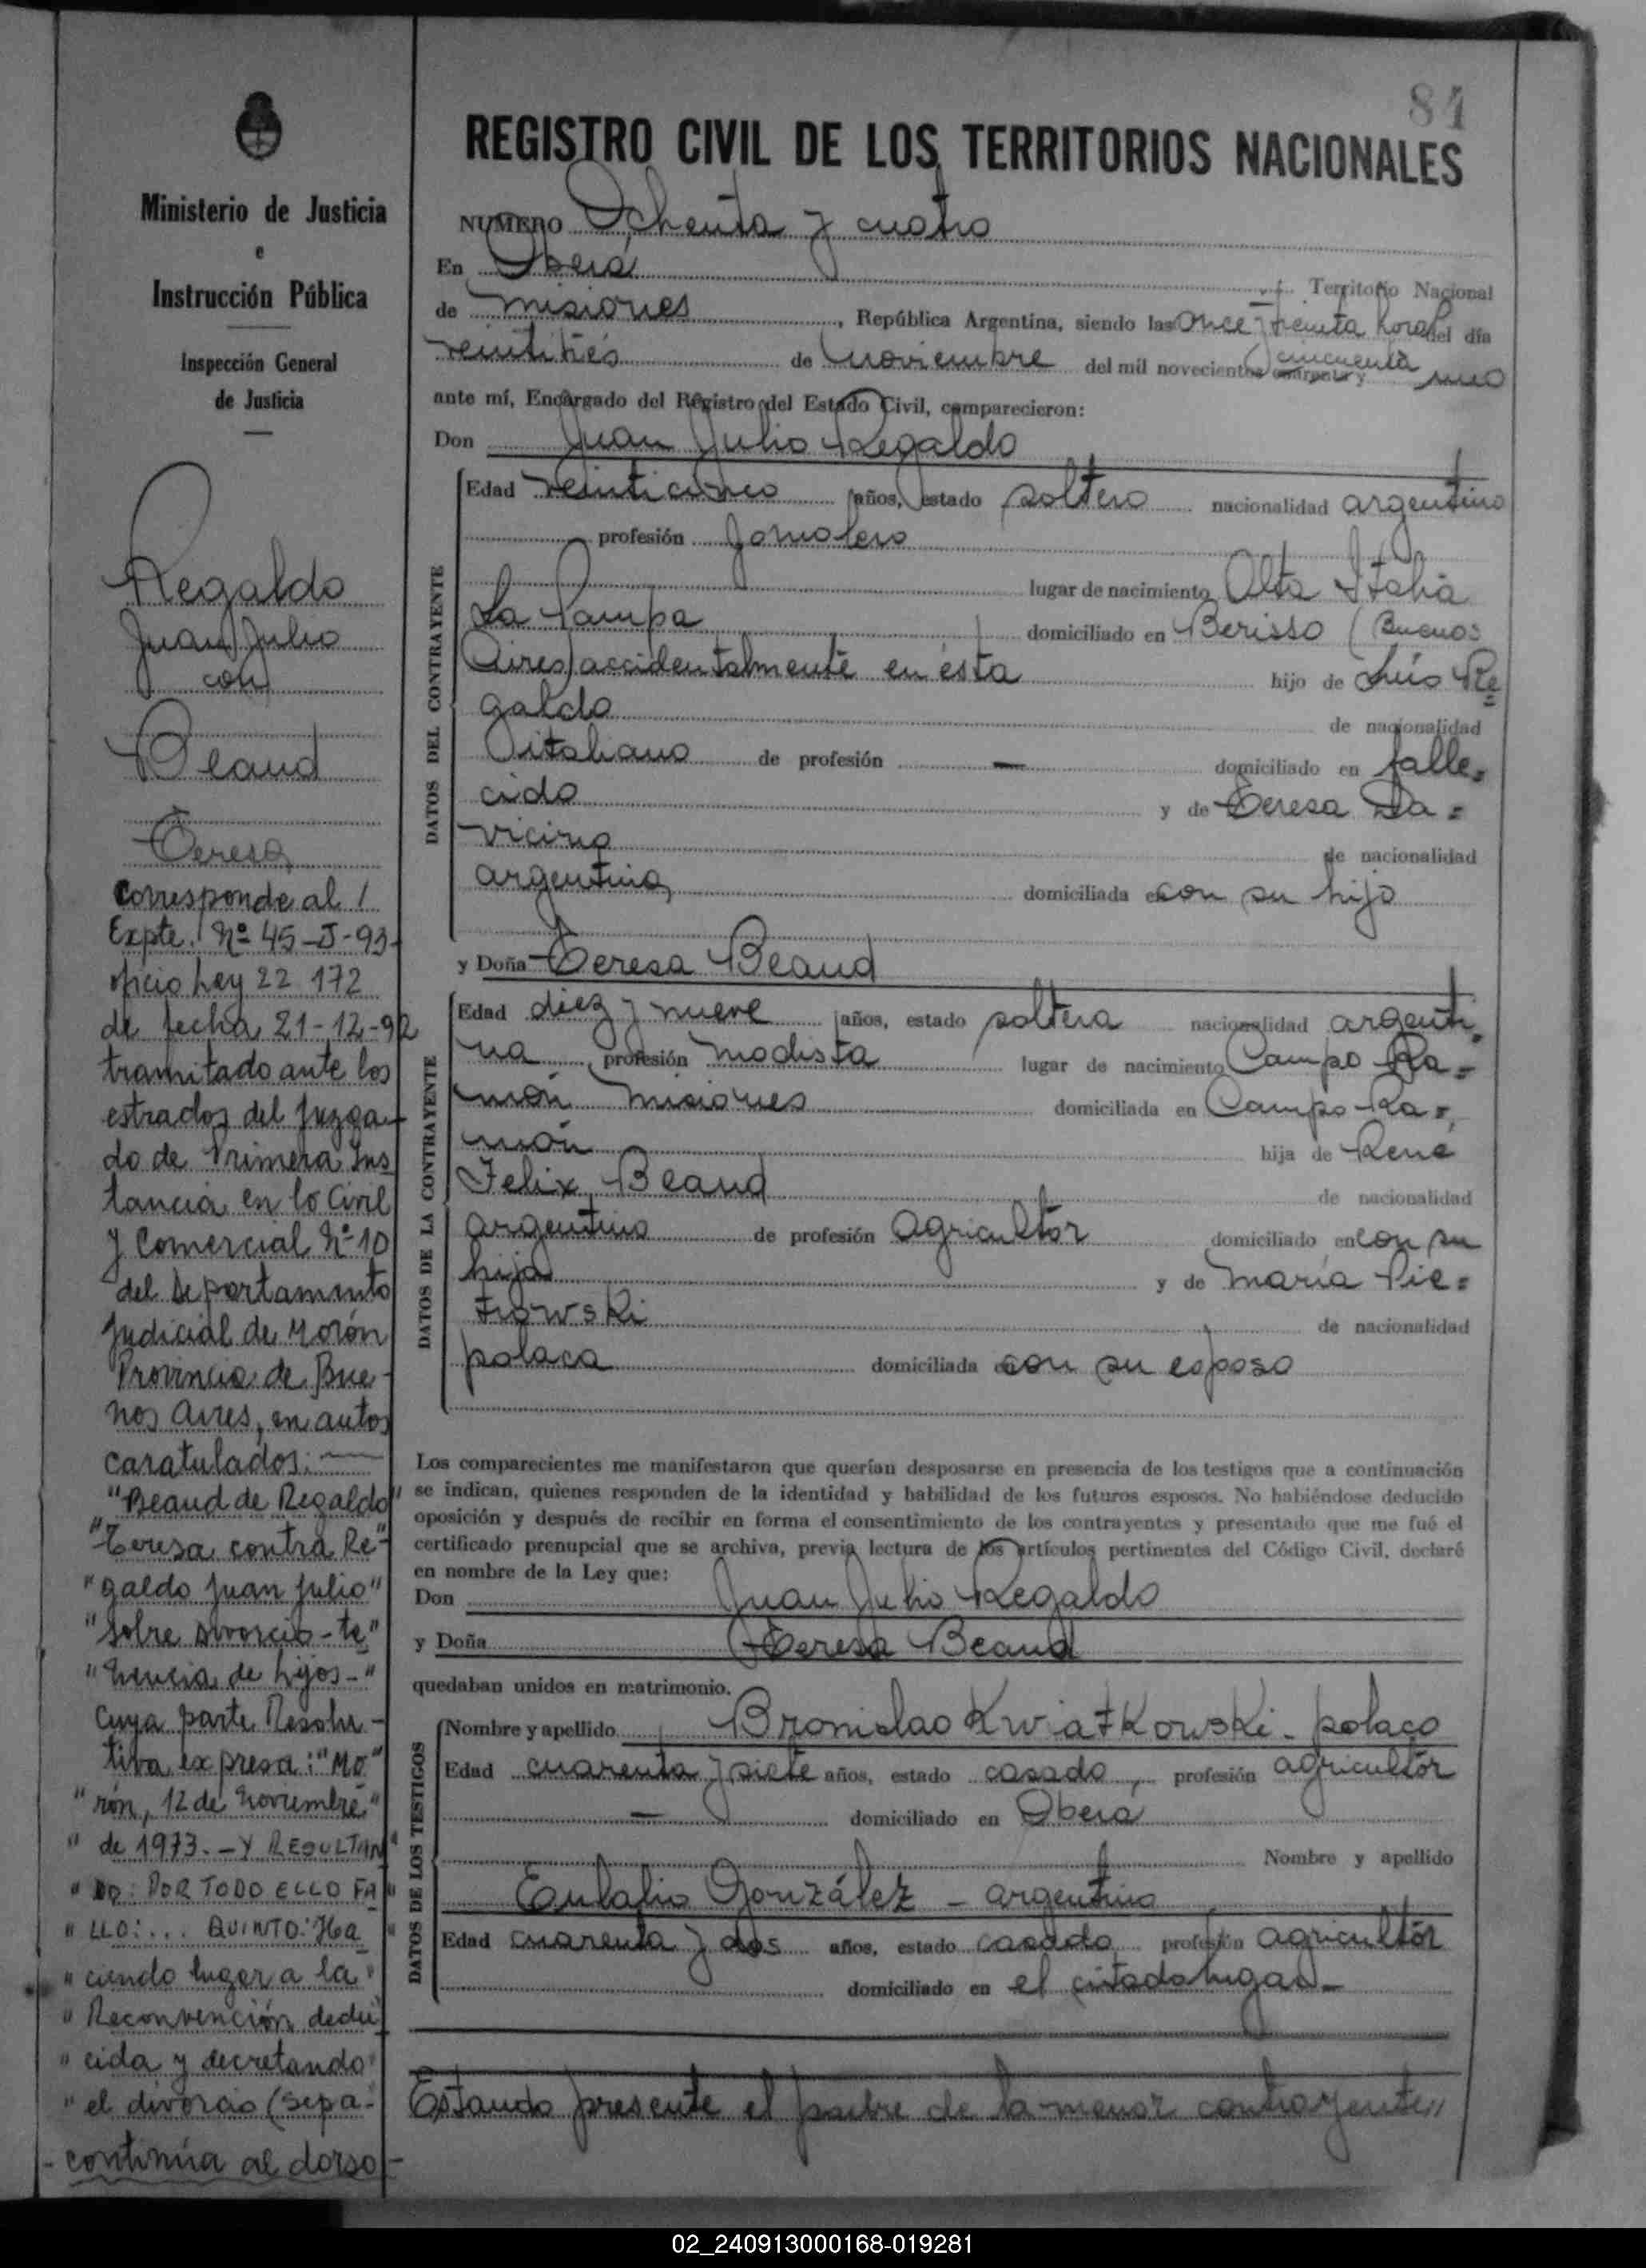 84
REGISTRO CIVIL DE LOS TERRITORIOS NACIONALES
Ministerio de Justicia
e
Instrucción Pública
Inspección General
de Justicia
Regaldo
Juan Julio
con
Beaud
Teresa
corresponde al /
Expte. Nº 45-J-93-
oficio Ley 22.172
de fecha 21-12-92
tramitado ante los
estrados del Juzga-
do de Primera Ins
tancia en lo Civil
y Comercial Nº 10
del Departamento
Judicial de Morón
Provincia de Bue-
nos Aires, en autos
caratulados:
"Beaud de Regaldo"
"Teresa contra Re-"
"galdo Juan Julio"
"sobre Divorcio-te"
"nencia de hijos-"
Cuya parte Resolu-
tiva expresa: "Mo"
"rón, 12 de Noviembre"
"de 1973.-Y RESULTAN"
"DO: POR TODO ELLO FA"
"LLO:... QUINTO: Ha
"ciendo lugar a la"
"Reconvención dedu
"cida y decretando"
"el divorcio (Sepa-"
- continúa al dorso -
NUMERO Ochenta y cuatro
En Oberá Territorio Nacional
de Misiones, República Argentina, siendo las once y treinta horas del día
veintitrés de noviembre del mil novecientos cuarenta y cincuenta uno
ante mí, Encargado del Registro del Estado Civil, comparecieron:
Don Juan Julio Regaldo
DATOS DEL CONTRAYENTE
Edad veinticinco años, estado soltero nacionalidad argentino
profesión Jornalero
lugar de nacimiento Alta Italia
La Pampa domiciliado en Berisso (Buenos
Aires) accidentalmente en ésta hijo de Luis Re=
galdo de nacionalidad
italiano de profesión — domiciliado en falle=
cido y de Teresa Da=
vicino de nacionalidad
argentina, domiciliada en con su hijo
y Doña Teresa Beaud
DATOS DE LA CONTRAYENTE
Edad diez y nueve años, estado soltera nacionalidad argenti=
na profesión modista lugar de nacimiento Campo Ra=
món Misiones domiciliada en Campo Ra=
món hija de René
Felix Beaud de nacionalidad
argentino de profesión agricultor domiciliado en con su
hija y de María Pie=
trowski de nacionalidad
polaca domiciliada en con su esposo
Los comparecientes me manifestaron que querían desposarse en presencia de los testigos que a continuación
se indican, quienes responden de la identidad y habilidad de los futuros esposos. No habiéndose deducido
oposición y después de recibir en forma el consentimiento de los contrayentes y presentado que me fué el
certificado prenupcial que se archiva, previa lectura de los artículos pertinentes del Código Civil, declaré
en nombre de la Ley que:
Don Juan Julio Regaldo
y Doña Teresa Beaud
quedaban unidos en matrimonio.
DATOS DE LOS TESTIGOS
Nombre y apellido Bronislao Kwiatkowski - polaco
Edad cuarenta y siete años, estado casado, profesión agricultor
— domiciliado en Oberá
Nombre y apellido
Eulalio González - argentino
Edad cuarenta y dos años, estado casado profesión agricultor
domiciliado en el citado lugar -
Estando presente el padre de la menor contrayente,,
02_240913000168-019281